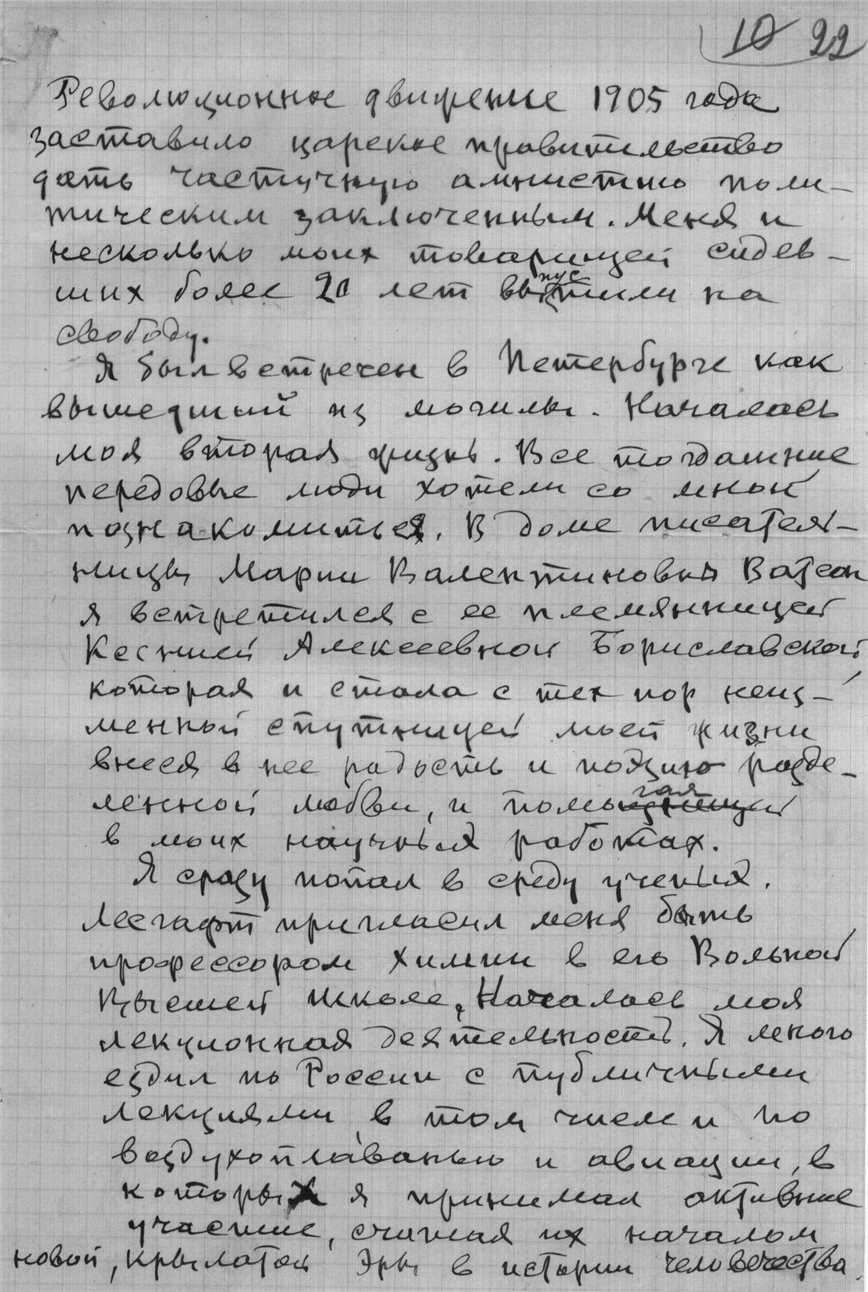 10 22
Революционное движение 1905 года
заставило царское правительство
дать частичную амнистию поли-
тическим заключенным. Меня и
несколько моих товарищей сидев-
ших более 20 лет выпустили на
свободу.
Я был встречен в Петербурге как
вышедший из могилы. Началась
моя вторая жизнь. Все тогдашние
передовые люди хотели со мной
познакомиться. В доме писатель-
ницы Марии Валентиновны Ватсон
я встретился с ее племянницей
Ксенией Алексеевной Бориславской
которая и стала с тех пор неиз-
менной спутницей моей жизни
внеся в нее радость и поэзию разде-
ленной любви, и помогая
в моих научных работах.
Я сразу попал в среду ученых.
Лесгафт пригласил меня быть
профессором химии в его Вольной
Высшей школе, Началась моя
лекционная деятельность. Я много
ездил по России с публичными
лекциями, в том числе и по
воздухоплаванью и авиации, в
которых я принимал активное
участие, считая их началом
новой, крылатой Эры в истории человечества.